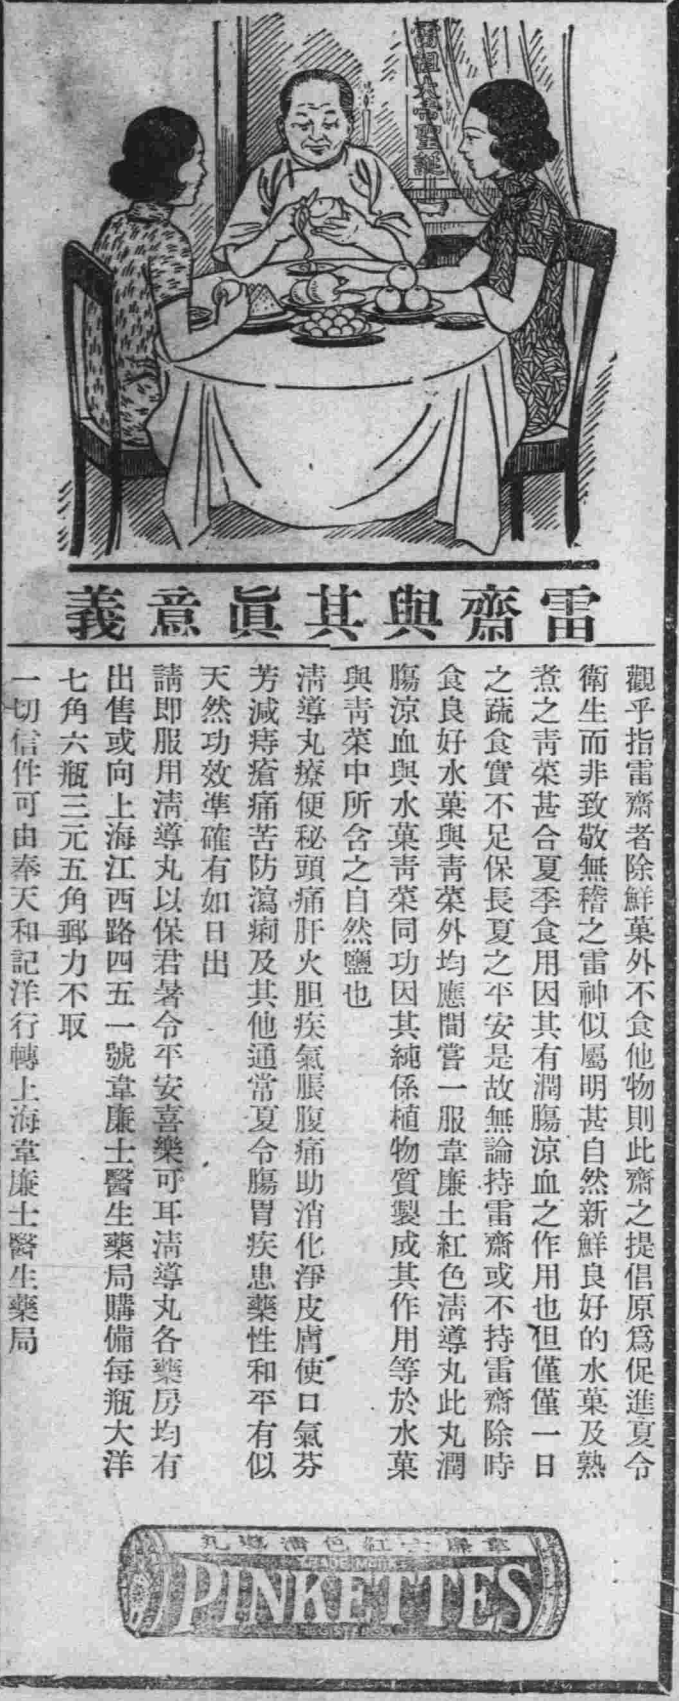 雷祖大帝聖誕
雷齋與其眞意義
觀乎指雷齋者除鮮菓外不食他物則此齋之提倡原爲促進夏令
衛生而非致敬無稽之雷神似屬明甚自然新鮮良好的水菓及熟
煮之靑菜甚合夏季食用因其有潤腸涼血之作用也但僅僅一日
之蔬食實不足保長夏之平安是故無論持雷齋或不持雷齋除時
食良好水菓與靑菜外均應間嘗一服韋廉士紅色淸導丸此丸潤
腸涼血與水菓靑菜同功因其純係植物質製成其作用等於水菓
與靑菜中所含之自然鹽也
淸導丸療便秘頭痛肝火胆疾氣脹腹痛助消化淨皮膚使口氣芬
芳減痔瘡痛苦防瀉痢及其他通常夏令腸胃疾患藥性和平有似
天然功效準確有如日出
請即服用淸導丸以保君暑令平安喜樂可耳淸導丸各藥房均有
出售或向上海江西路四五一號韋廉士醫生藥局購備每瓶大洋
七角六瓶三元五角郵力不取
一切信件可由奉天和記洋行轉上海韋廉士醫生藥局
韋廉士紅色淸導丸
TRADE MARK
PINKETTES
REGISTERED